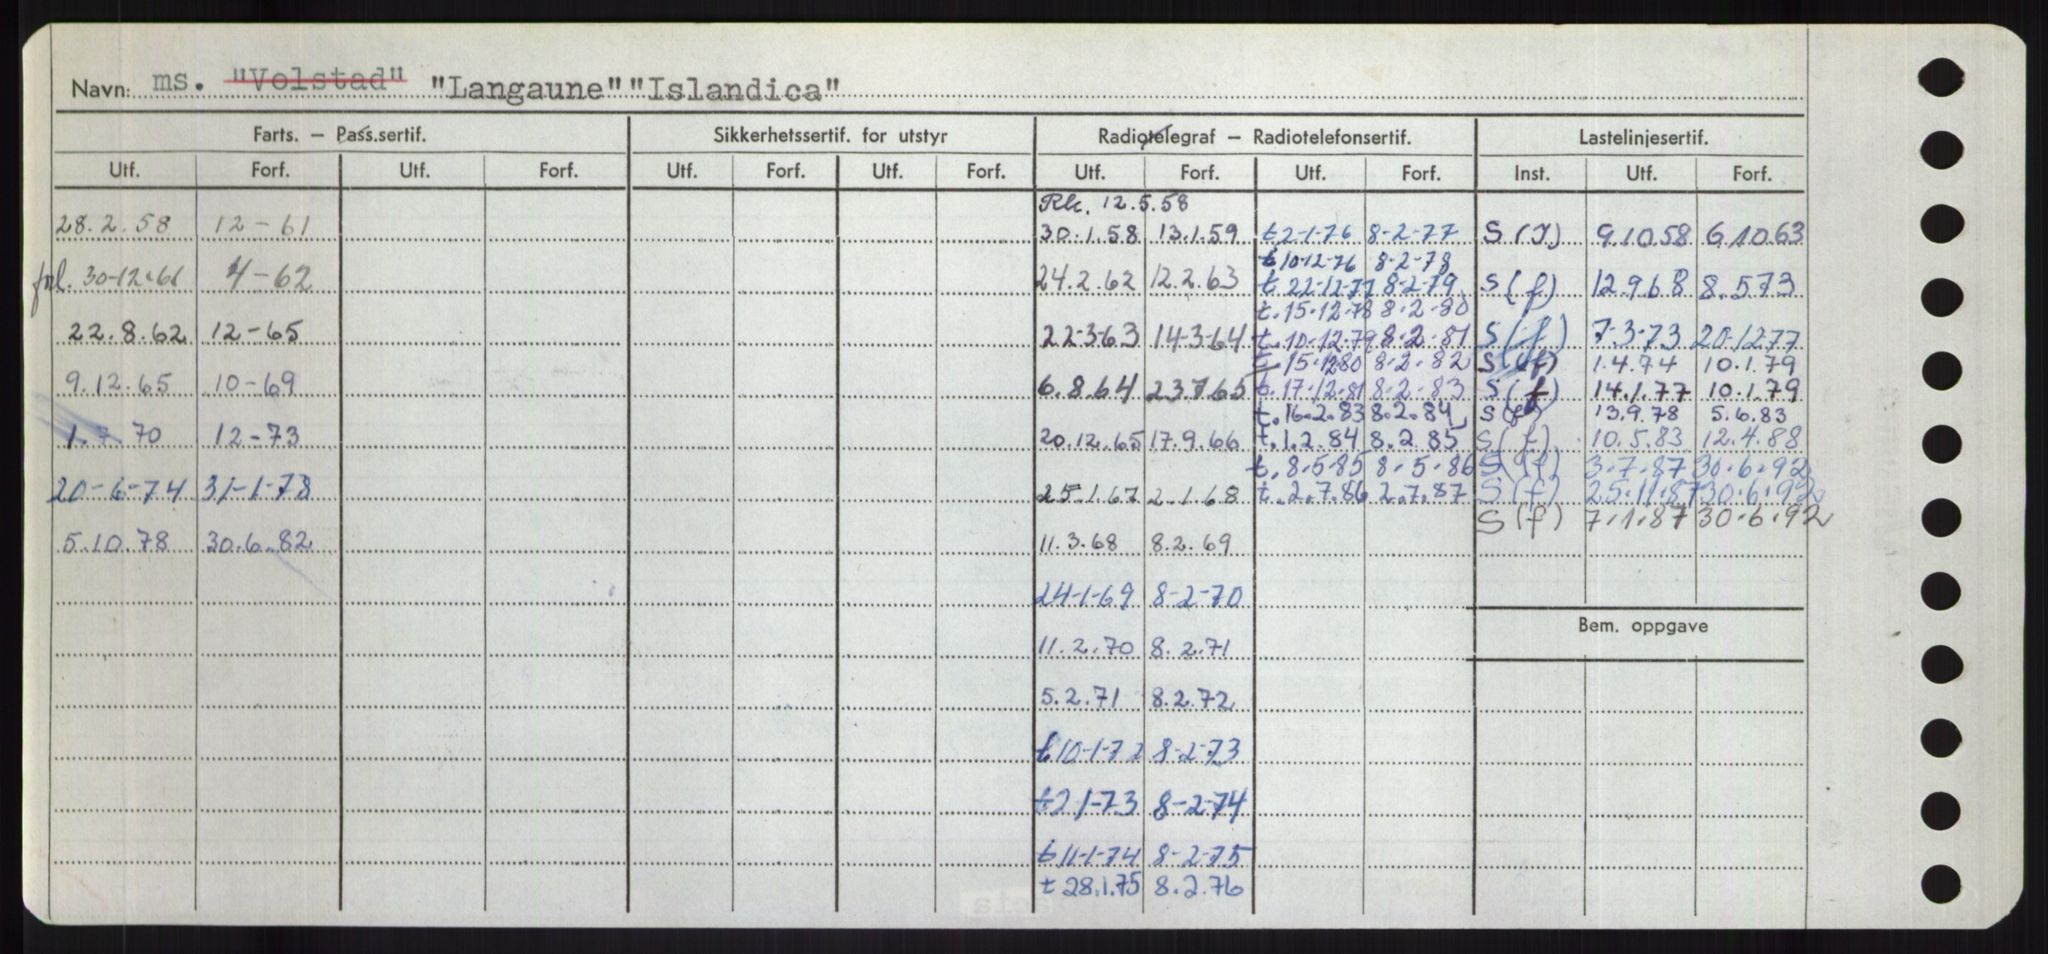 Navn: ms. "Volstad" "Langaune" "Islandica"
Farts. – Pass.sertif. Sikkerhetssertif. for utstyr Radiotelegraf – Radiotelefonsertif. Lastelinjesertif.
Utf. Forf. Utf. Forf. Utf. Forf. Utf. Forf. Utf. Forf. Utf. Forf. Inst. Utf. Forf.
Rk. 12.5.58
28.2.58 12-61 30.1.58 13.1.59 t 2-1-76 8-2-77 S (I) 9.10.58 6.10.63
t 10-12-76 8-2-78
forl. 30-12-61 4-62 24.2.62 12.2.63 t. 22-12-77 8-2-79 S (f) 12.9.68 8.5.73
t. 15-12-78 8-2-80
22.8.62 12-65 22-3-63 14-3-64 t. 10.12.79 8.2.81 S (f) 7-3-73 20.12.77
t. 15.12.80 8.2.82 S (f) 1.4.74 10.1.79
9.12.65 10-69 6.8.64 23.7.65 t. 17.12.81 8.2.83 S (f) 14.1.77 10.1.79
t. 16.2.83 8.2.84 S (f) 13.9.78 5.6.83
1.7.70 12-73 20.12.65 17.9.66 t. 1.2.84 8.2.85 S (f) 10.5.83 12.4.88
t. 8.5.85 8.5.86 S (f) 3.7.87 30.6.92
20-6-74 31-1-78 25.1.67 2.1.68 t. 2.7.86 2.7.87 S (f) 25.11.87 30.6.92
S (f) 7.1.87 30.6.92
5.10.78 30.6.82 11.3.68 8.2.69
24-1-69 8-2-70
Bem. oppgave
11.2.70 8.2.71
5.2.71 8.2.72
t 10-1-72 8-2-73
t 2-1-73 8-2-74
t 11-1-74 8-2-75
t 28.1.75 8.2.76